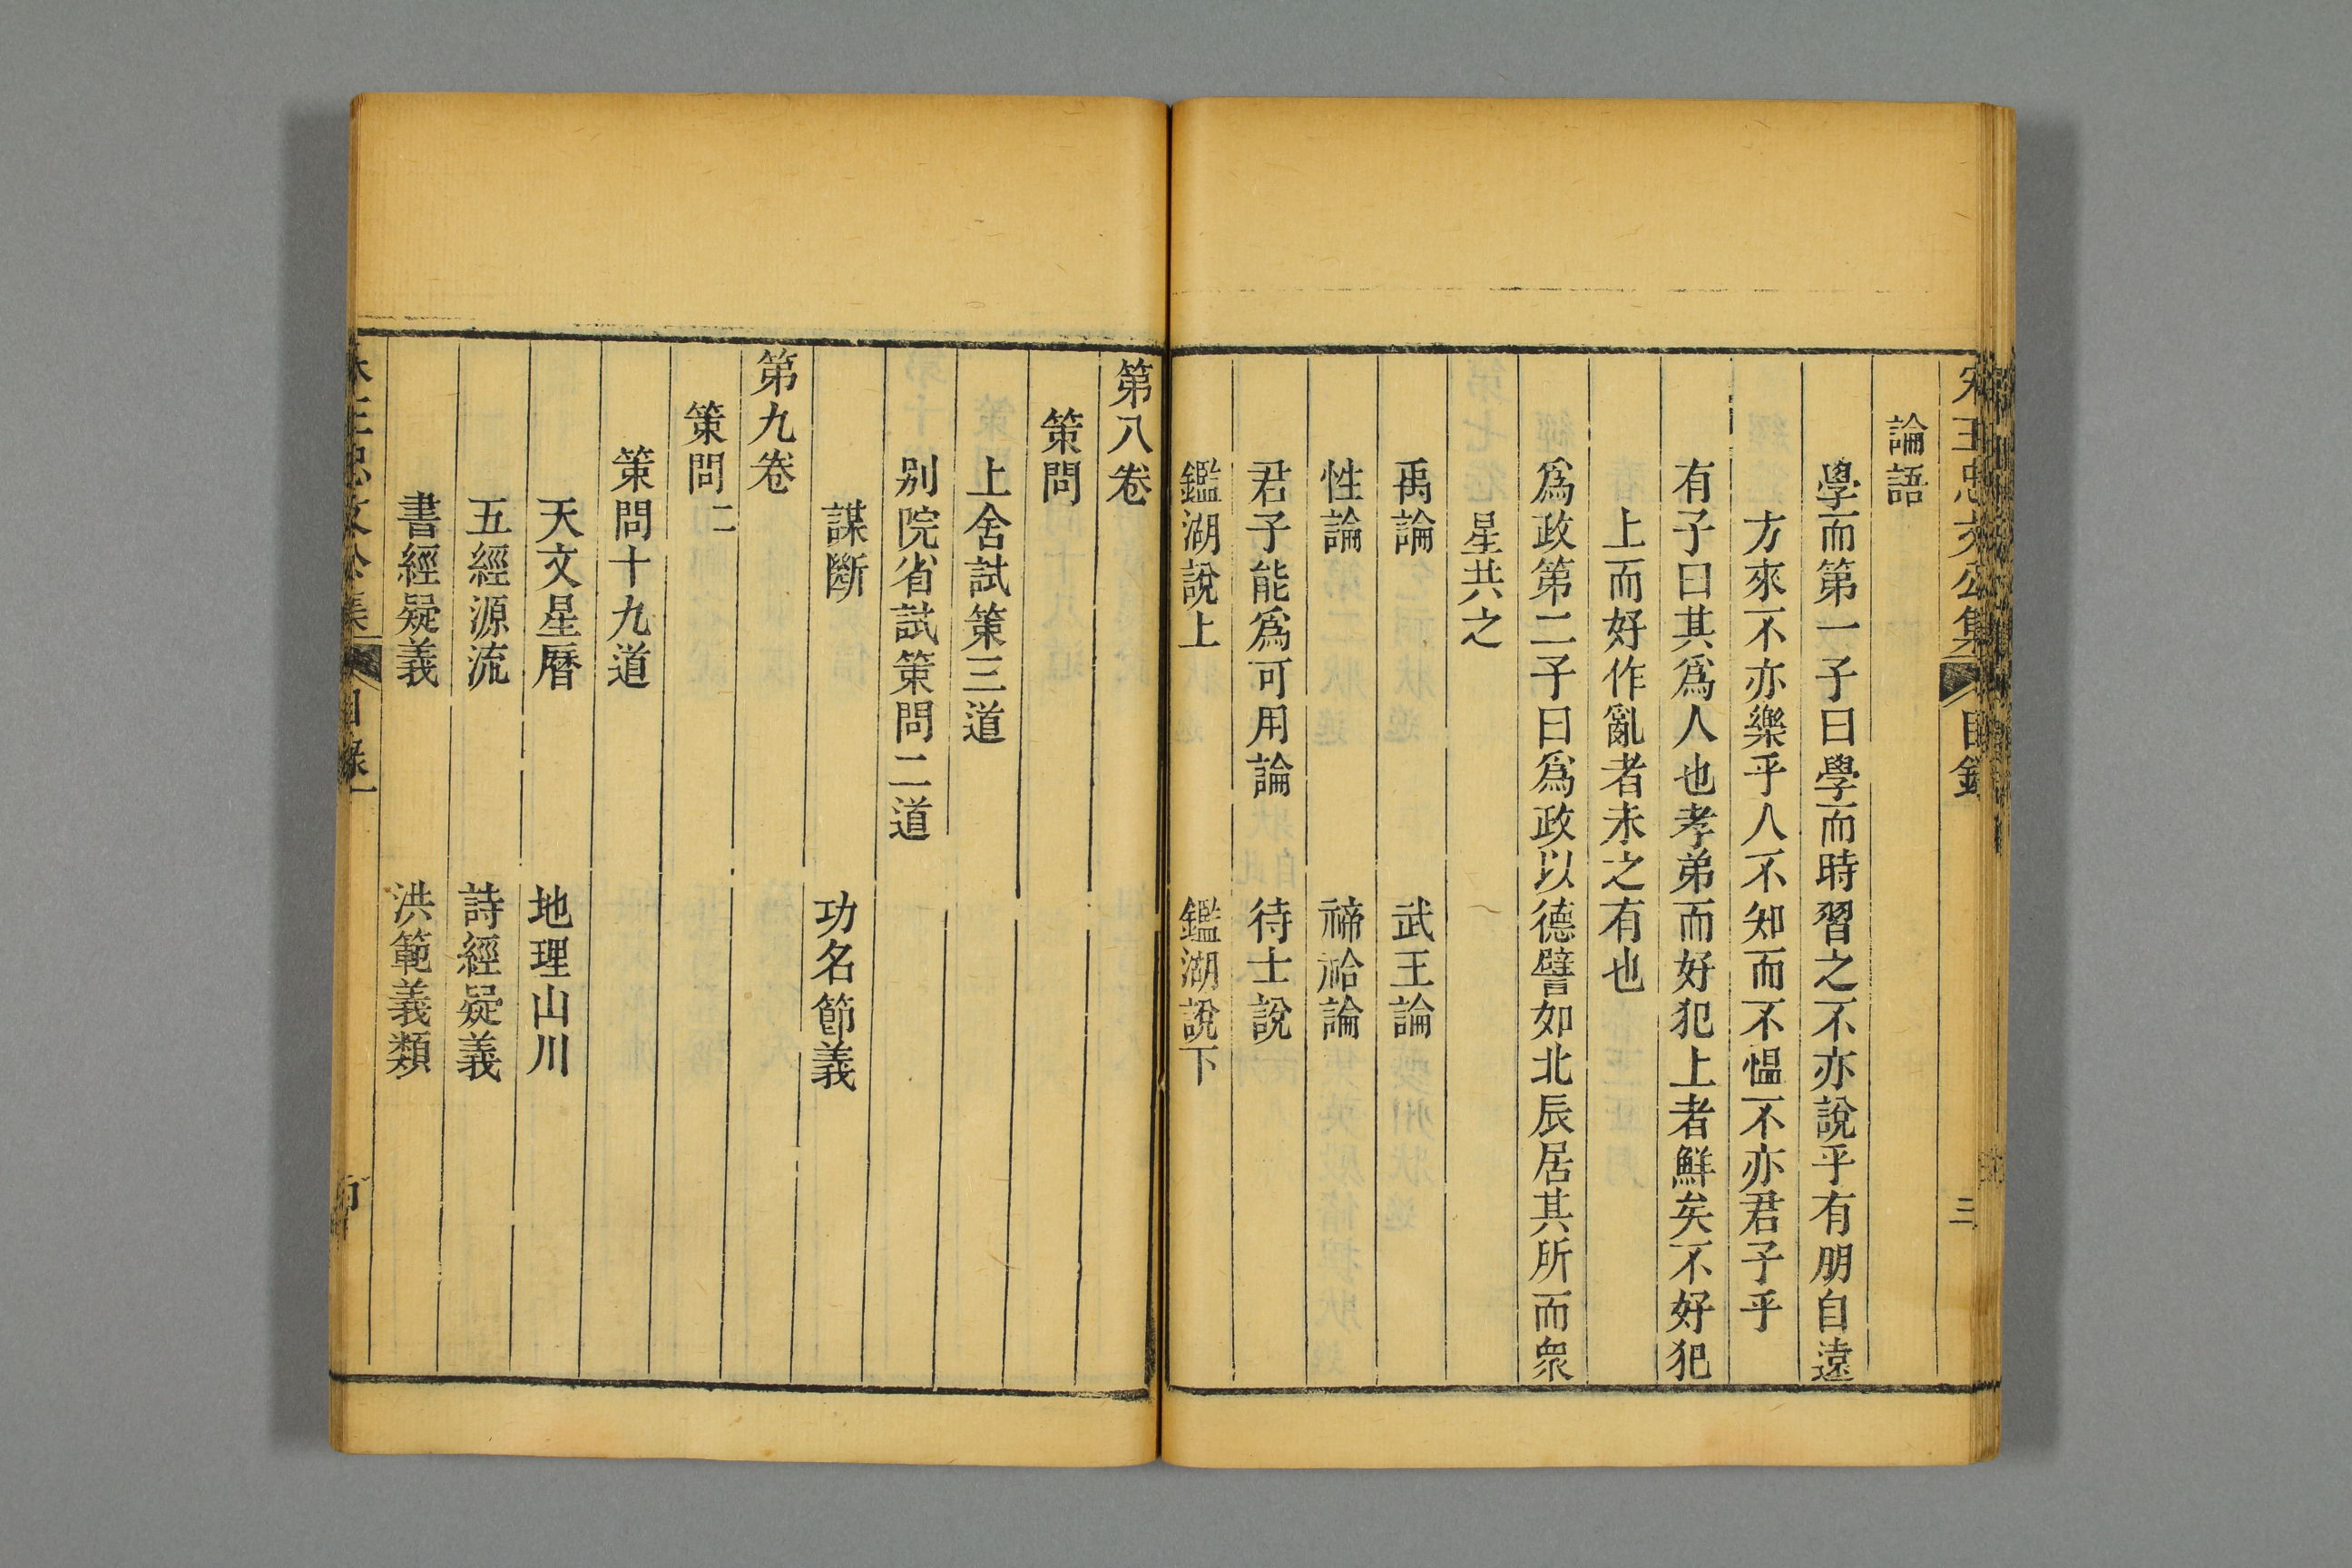 宋王忠文公集 目錄 三
論語
學而第一子曰學而時習之不亦說乎有朋自遠
方來不亦樂乎人不知而不慍不亦君子乎
有子曰其爲人也孝弟而好犯上者鮮矣不好犯
上而好作亂者未之有也
爲政第二子曰爲政以德譬如北辰居其所而衆
星共之
禹論 武王論
性論 禘祫論
君子能爲可用論 待士說
鑑湖說上 鑑湖說下
第八卷
策問
上舍試策三道
别院省試策問二道
謀斷 功名節義
第九卷
策問二
策問十九道
天文星曆 地理山川
五經源流 詩經疑義
書經疑義 洪範義類